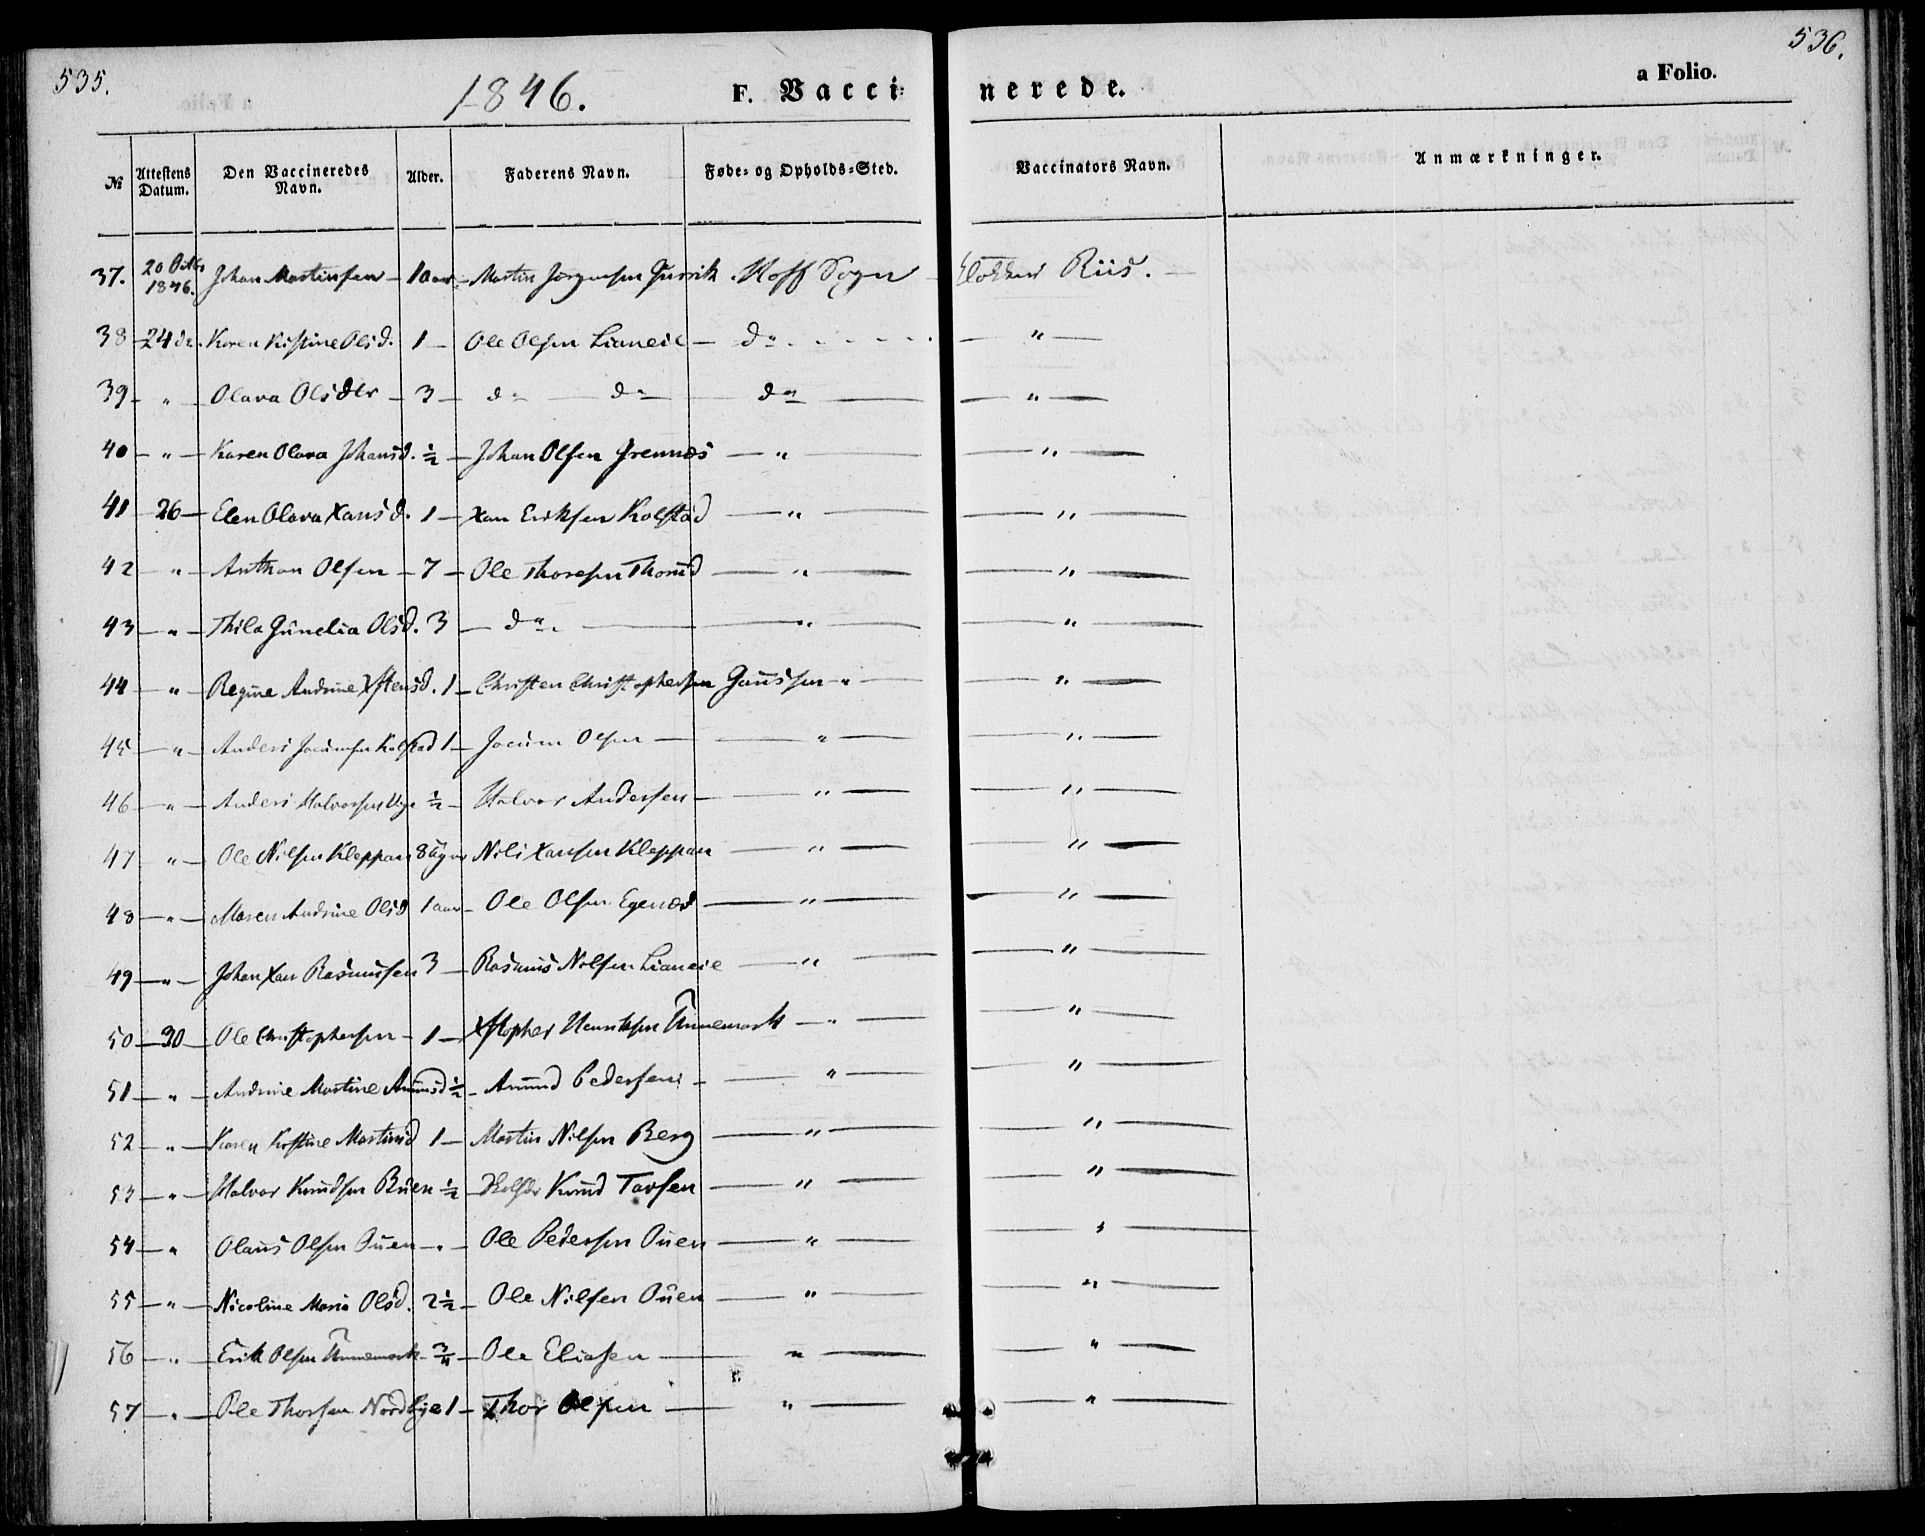 535.
536.
1846.
F. Vacci=
nerede.
a Folio.
№ | Attestens Datum. | Den Vaccineredes Navn. | Alder. | Faderens Navn. | Føde- og Opholds-Sted. | Vaccinators Navn. | Anmærkninger.
37. 20 Octbr 1846. Johan Martinsen – 1 aar – Martin Jørgensen – Hoff Sogn – Klokker Riis. –
38 – 24 do. Karen Kistine Olsd. 1 – Ole Olsen Lianeie – do – " –
39 – " – Olava Olsdtr – 3 – do – do – do – " –
40 – " – Karen Olava Johansd. ½ – Johan Olsen – " – " –
41 – 26 – Elen Olava Xansd. 1 – Xan Eriksen Kolstad – " – " –
42 – " – Anthon Olsen – 7 – Ole Thoresen Thorud – " – " –
43 – " – Thila Gunelia Olsd. 3 – do – " – " –
44 – " – Regine Andrine Xstensd. 1 – Christen Christophersen – " – " –
45 – " – Anders Jocumsen Kolstad 1 – Jocum Olsen – " – " –
46 – " – Anders Halvorsen ½ – Halvor Andersen – " – " –
47 – " – Ole Nilsen Kleppan 8 Uger Nils Xansen Kleppan – " – " –
48 – " – Maren Andrine Olsd 1 aar – Ole Olsen – " – " –
49 – " – Johan Xan Rasmussen 3 – Rasmus Nilsen Lianeie – " – " –
50 – 30 – Ole Christophersen – 1 – Xstopher Henriksen Tinnemark – " – " –
51 – " – Andrine Martine Amundsd ½ – Amund Pedersen – " – " –
52 – " – Karen Kistine Martinsd 1 – Martin Nilsen Berg – " – " –
53 – " – Halvor Knudsen ½ – Knud Tarsen – " – " –
54 – " Olaus Olsen Øuen – " – Ole Pedersen Øuen – " – " –
55 – " – Nicoline Maria Olsd. 2½ – Ole Nilsen Øuen – " – " –
56 – " – Erik Olsen Tinnemark – ¾ – Ole Eliasen – " – " –
57 – " – Ole Thorsen Nordbye 1 – Thor Olsen – " – " –